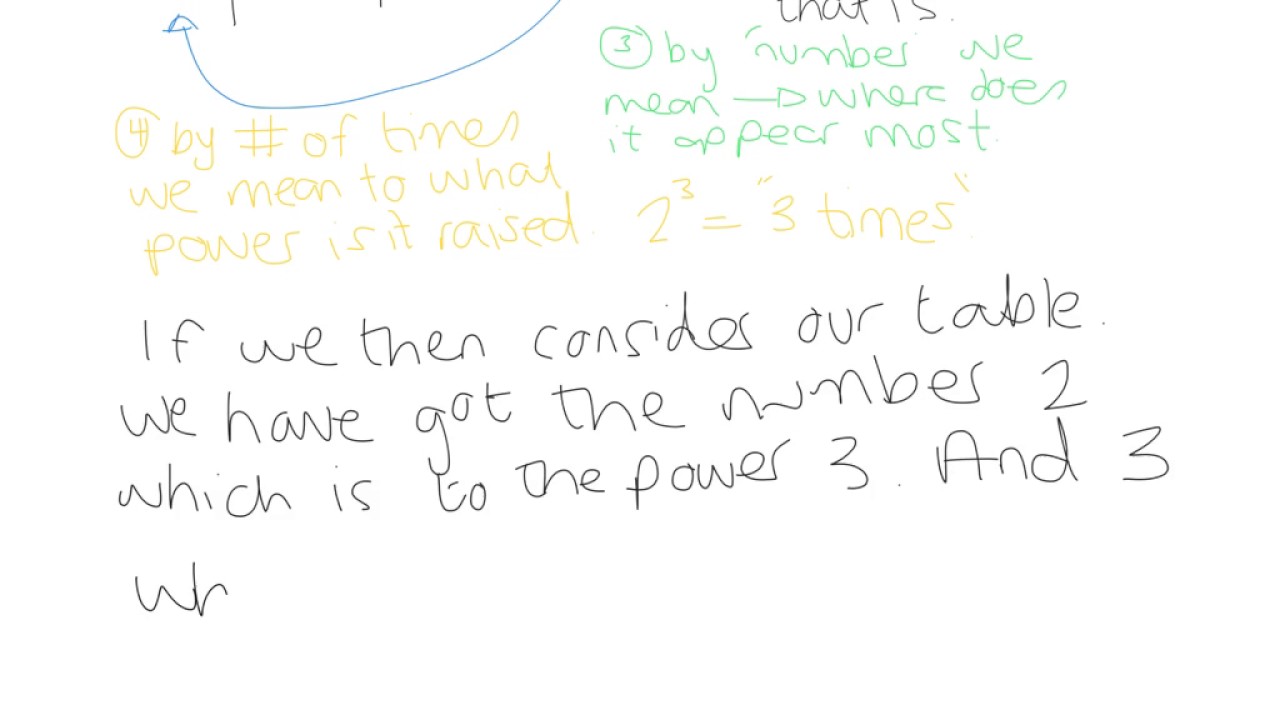 that is.
③ by "number" we
mean → where does
it appear most.
④ by # of times
we mean to what
power is it raised. 2³ = "3 times".
If we then consider our table.
we have got the number 2
which is to the power 3. And 3
wh